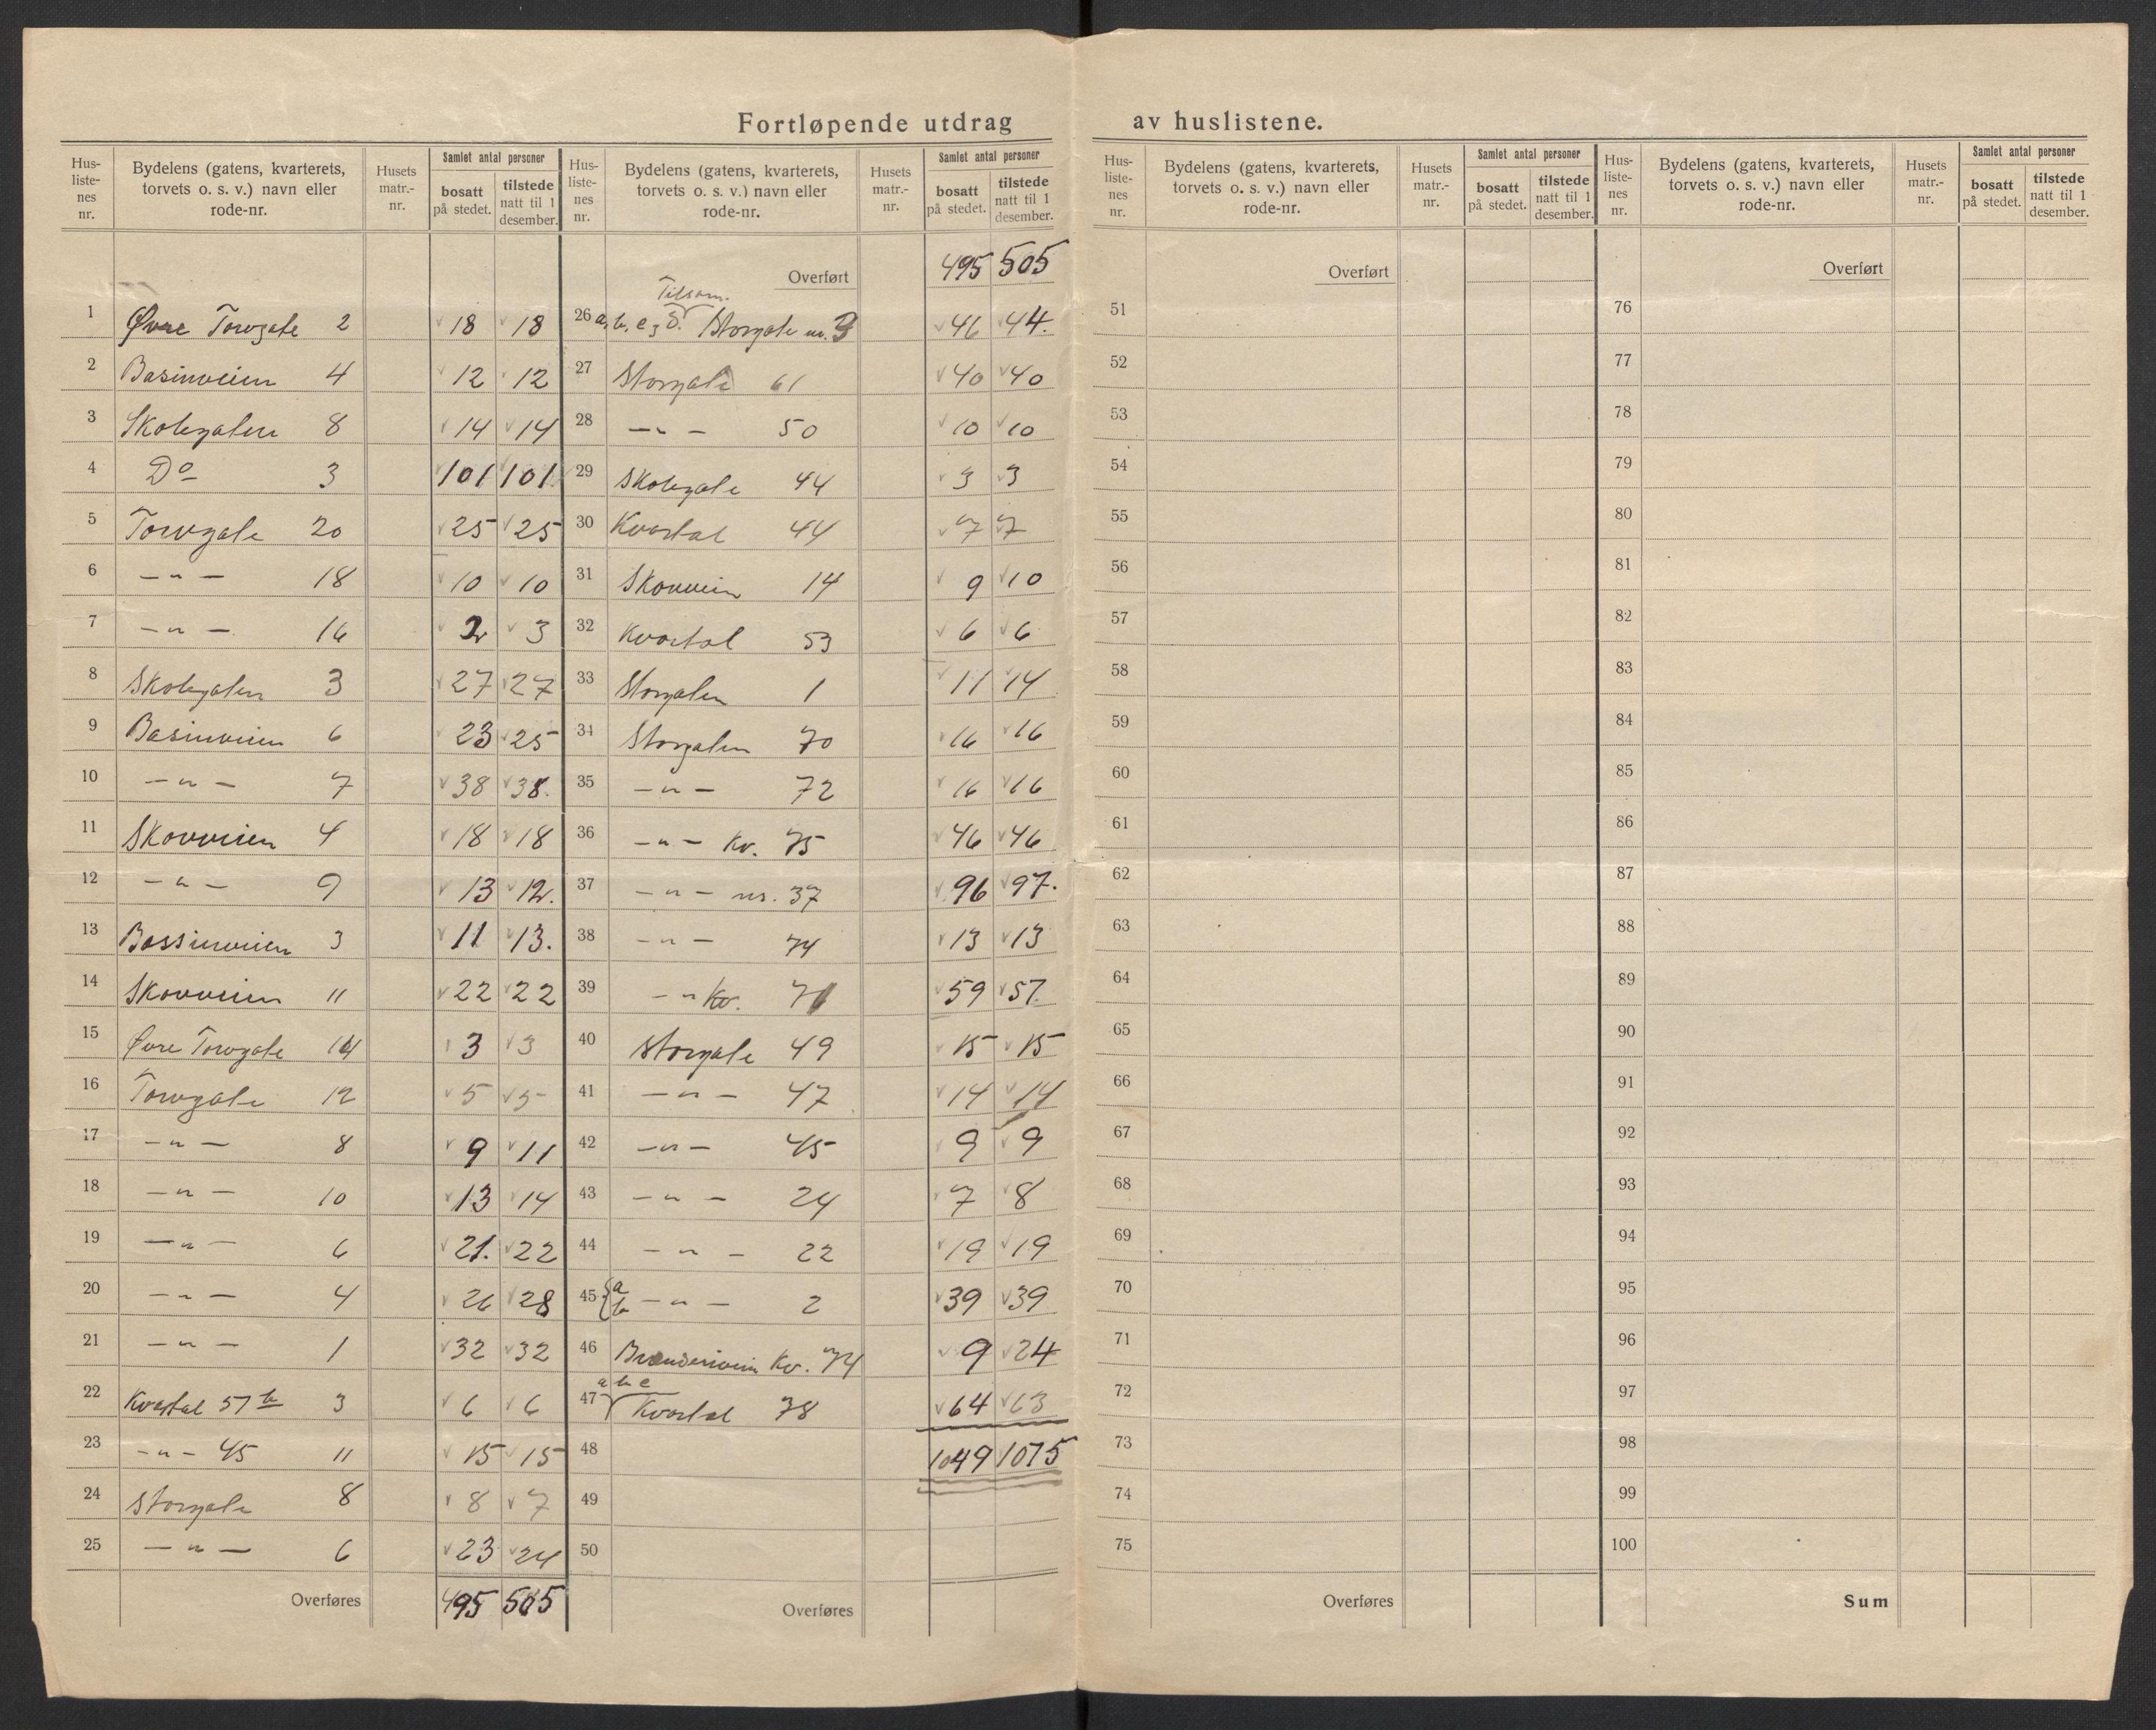 Fortløpende utdrag av huslistene.
Hus-liste-nes nr. Bydelens (gatens, kvarterets, torvets o. s. v.) navn eller rode-nr. Husets matr.-nr. Samlet antal personer bosatt på stedet. tilstede natt til 1 desember.
1 Øvre Torvgate 2 18 18
2 Basinveien 4 12 12
3 Skolegaten 8 14 14
4 Do 3 101 101
5 Torvgate 20 25 25
6 — " — 18 10 10
7 — " — 16 2 3
8 Skolegaten 3 27 27
9 Basinveien 6 23 25
10 — " — 7 38 38.
11 Skovveien 4 18 18
12 — " — 9 13 12.
13 Bassinveien 3 11 13.
14 Skovveien 11 22 22
15 Øvre Torvgate 14 3 3
16 Torvgate 12 5 5
17 — " — 8 9 11
18 — " — 10 13 14
19 — " — 6 21. 22
20 — " — 4 26 28
21 — " — 1 32 32
22 Kvartal 57 b 3 6 6
23 — " — 45 11 15 15
24 Storgate 8 8 7
25 — " — 6 23 24
Overføres 495 505
Hus-liste-nes nr. Bydelens (gatens, kvarterets, torvets o. s. v.) navn eller rode-nr. Husets matr.-nr. Samlet antal personer bosatt på stedet. tilstede natt til 1 desember.
Overført 495 505
Tilsam.
26 a, b, c, d. Storgate nr. 3 46 44.
27 Storgate 61 40 40
28 — " — 50 10 10
29 Skolegate 44 3 3
30 Kvartal 44 7 7
31 Skovveien 14 9 10
32 Kvartal 53 6 6
33 Storgaten 1 11 14
34 Storgaten 70 16 16
35 — " — 72 16 16
36 — " — Kv. 75 46 46
37 — " — nr. 37 96 97.
38 — " — 74 13 13
39 — " Kv. 71 59 57.
40 Storgate 49 15 15
41 — " — 47 14 14
42 — " — 45 9 9
43 — " — 24 7 8
44 — " — 22 19 19
45 a b — " — 2 39 39
46 Kv. 74 9 24
a b c
47 Kvartal 78 64 63
48 1049 1075
49
50
Overføres
Hus-liste-nes nr. Bydelens (gatens, kvarterets, torvets o. s. v.) navn eller rode-nr. Husets matr.-nr. Samlet antal personer bosatt på stedet. tilstede natt til 1 desember.
Overført
51
52
53
54
55
56
57
58
59
60
61
62
63
64
65
66
67
68
69
70
71
72
73
74
75
Overføres
Hus-liste-nes nr. Bydelens (gatens, kvarterets, torvets o. s. v.) navn eller rode-nr. Husets matr.-nr. Samlet antal personer bosatt på stedet. tilstede natt til 1 desember.
Overført
76
77
78
79
80
81
82
83
84
85
86
87
88
89
90
91
92
93
94
95
96
97
98
99
100
Sum